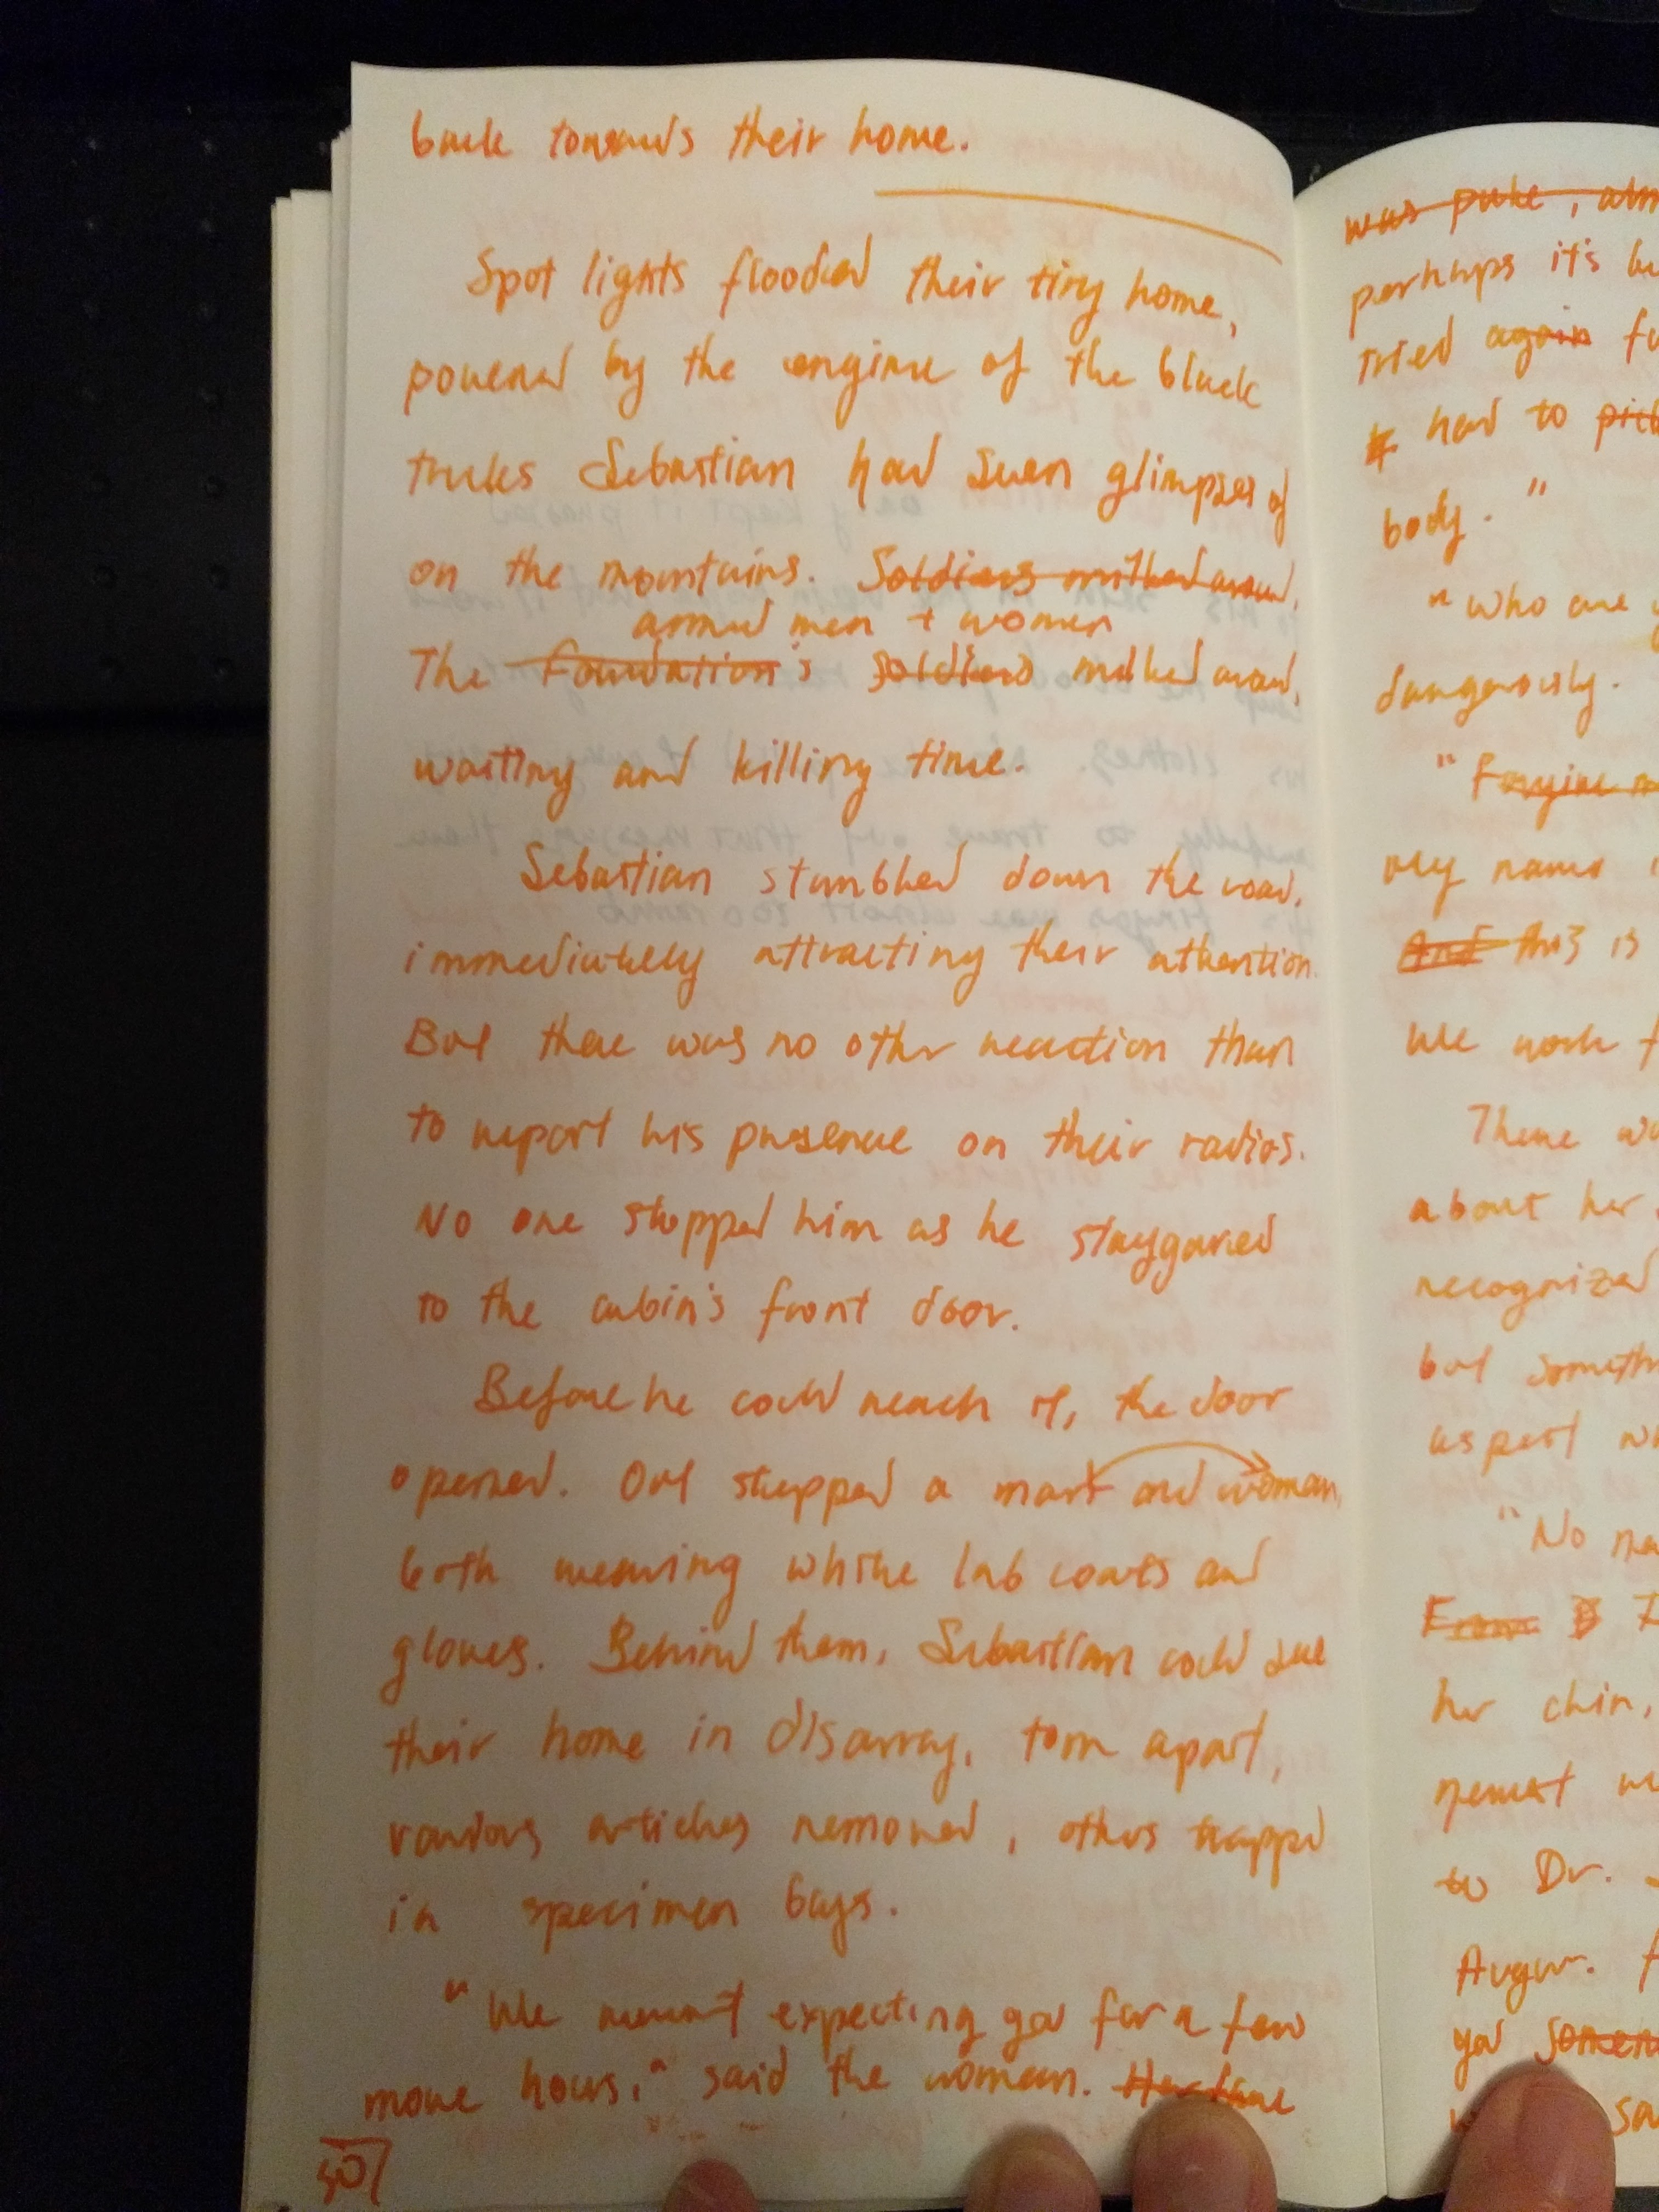 back towards their home.
Spot lights flooded their tiny home,
powered by the engine of the black
trucks Sebastian had seen glimpses of
on the mountains. Soldiers milled around,
armed men + women
The Foundation's soldiers milled around,
waiting and killing time.
Sebastian stumbled down the road,
immediately attracting their attention.
But there was no other reaction than
to report his presence on their radios.
No one stopped him as he staggered
to the cabin's front door.
Before he could reach it, the door
opened. Out stepped a man and woman,
both wearing white lab coats and
gloves. Behind them, Sebastian could see
their home in disarray, torn apart,
various articles removed, others trapped
in specimen bags.
"We weren't expecting you for a few
more hours," said the woman. Her face
507
was pale,
perhaps it's
tried again
had to
body."
"Who are
dangerously.
"Forgive
my name
And this is
We work
There
about her
recognized
but
aspect
"No
From
her chin,
to Dr.
Augur.
you